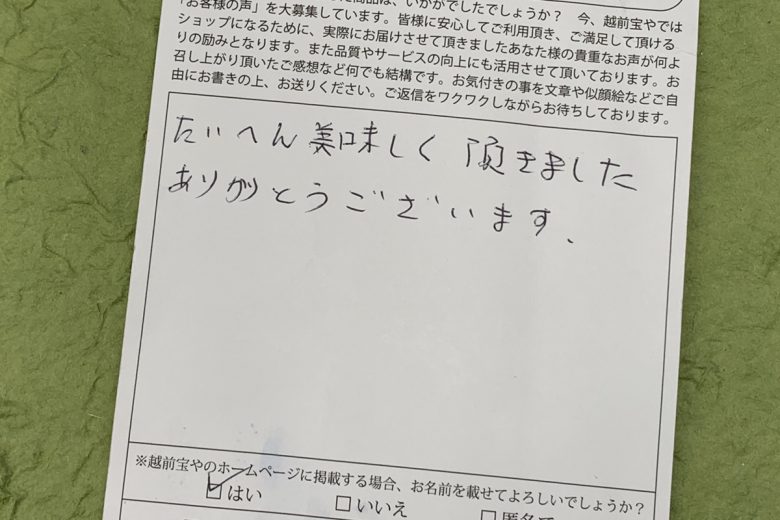 商品は、いかがでしたでしょうか？ 今、越前宝やでは
「お客様の声」を大募集しています。皆様に安心してご利用頂き、ご満足して頂ける
ショップになるために、実際にお届けさせて頂きましたあなた様の貴重なお声が何よ
りの励みとなります。また品質やサービスの向上にも活用させて頂いております。お
召し上がり頂いたご感想など何でも結構です。お気付きの事を文章や似顔絵などご自
由にお書きの上、お送りください。ご返信をワクワクしながらお待ちしております。
たいへん美味しく頂きました
ありがとうございます、
※越前宝やのホームページに掲載する場合、お名前を載せてよろしいでしょうか？
☑はい □いいえ □匿名で